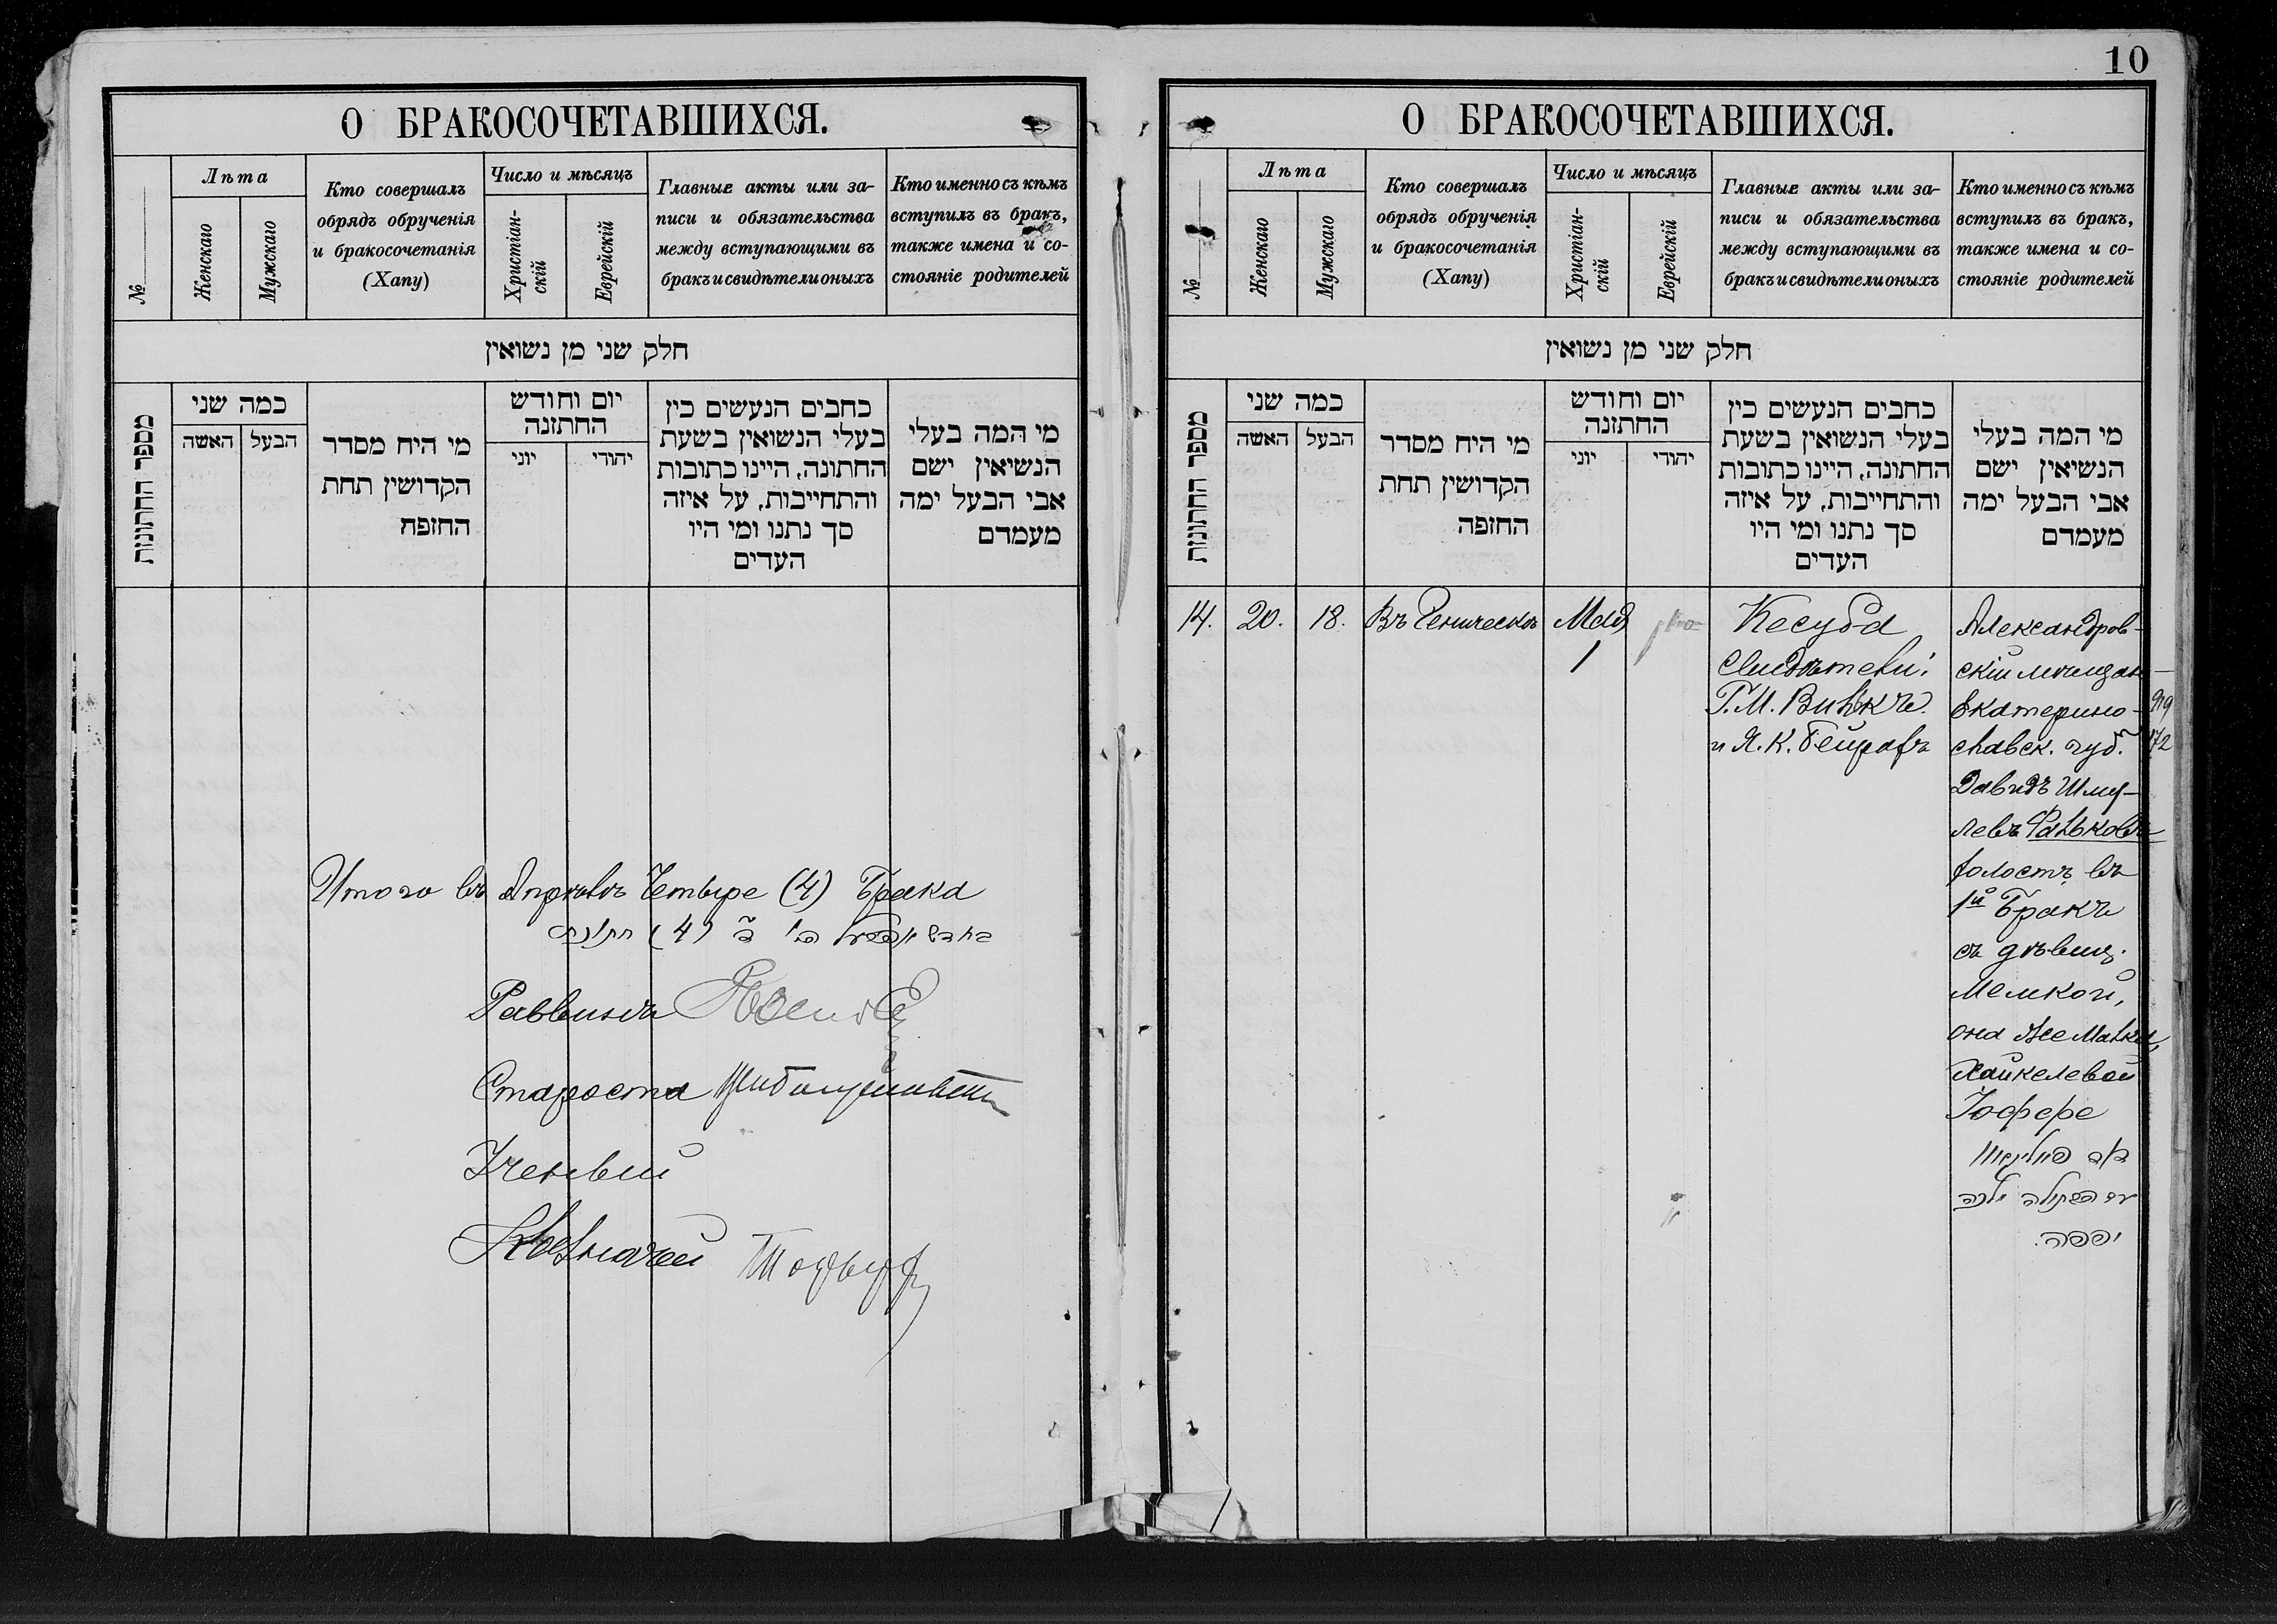 10
О БРАКОСОЧЕТАВШИХСЯ.
№
Лѣта
Женскаго
Мужскаго
Кто совершалъ
обрядъ обрученія
и бракосочетанія
(Хапу)
Число и мѣсяцъ
Христіан-
скій
Еврейскій
Главные акты или за-
писи и обязательства
между вступающими въ
бракъ и свидѣтели оныхъ
Кто именно съ кѣмъ
вступилъ въ бракъ,
также имена и со-
стояніе родителей
חלק שני מן נשואין
מספר החתונות
כמה שני
האשה
הבעל
מי היח מסדר
הקדושין תחת
החופח
יום וחודש
החתונה
יוני
יהודי
כחבים הנעשים כין
בעלי הנשואין בשעת
החתונה, היינו כתובות
והתחייבות, על איזה
סך נתנו ומי היו
העדים
מי המה בעלי
הנשיאין ישם
אבי הבעל ימה
מעמדם
Итого въ Апрѣлѣ Четыре (4) Брака
(4)
Раввинъ
Староста
Ученый
Казначей
О БРАКОСОЧЕТАВШИХСЯ.
№
Лѣта
Женскаго
Мужскаго
Кто совершалъ
обрядъ обрученія
и бракосочетанія
(Хапу)
Число и мѣсяцъ
Христіан-
скій
Еврейскій
Главные акты или за-
писи и обязательства
между вступающими въ
бракъ и свидѣтели оныхъ
Кто именно съ кѣмъ
вступилъ въ бракъ,
также имена и со-
стояніе родителей
חלק שני מן נשואין
מספר החתונות
כמה שני
האשה
הבעל
מי היח מסדר
הקדושין תחת
החופה
יום וחודש
החתונה
יוני
יהודי
כחבים הנעשים כין
בעלי הנשואין בשעת
החתונה, היינו כתובות
והתחייבות, על איזה
סך נתנו ומי היו
העדים
מי המה בעלי
הנשיאין ישם
אבי הבעל ימה
מעמדם
14.
20.
18.
Въ Геническѣ
Мая
1
Кесуба
Свидѣтели:
Г. М.
и Я. К.
Александров-
скій мѣщан-
Екатерино-
славск. губ.
Давидъ Шму-
левъ Фальковъ
холостъ въ
1й Бракъ
съ дѣвиц.
Мемкой,
она же Малка,
Хайкелевой
Іоффе
יפפה.